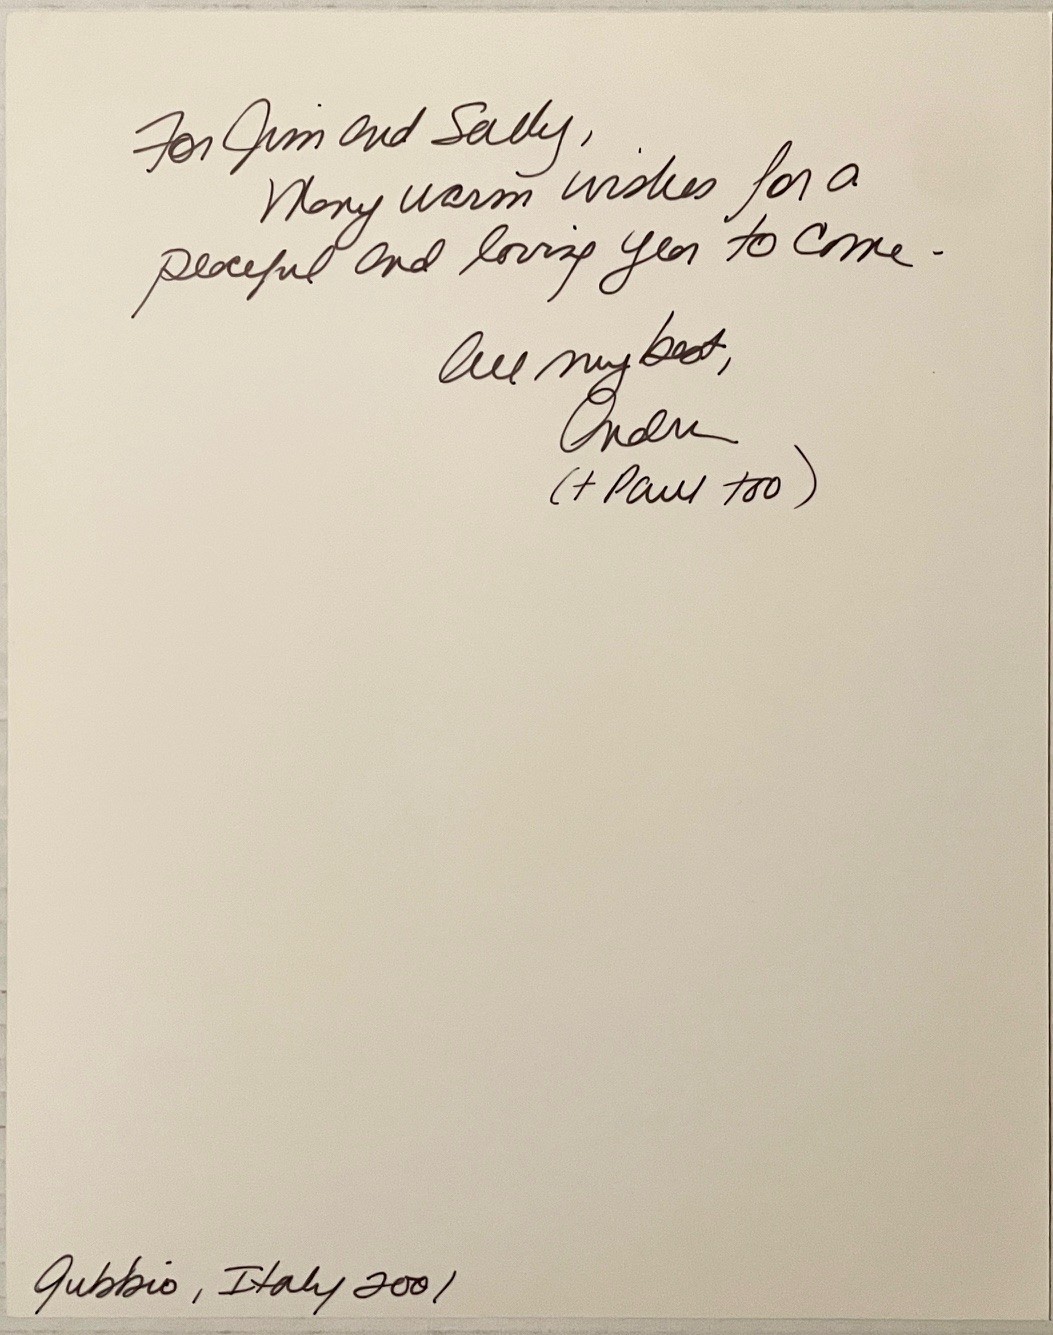 For Jim and Sally,
Many warm wishes for a
peaceful and loving year to come -
All my best,
(+ Paul too)
Gubbio, Italy 2001